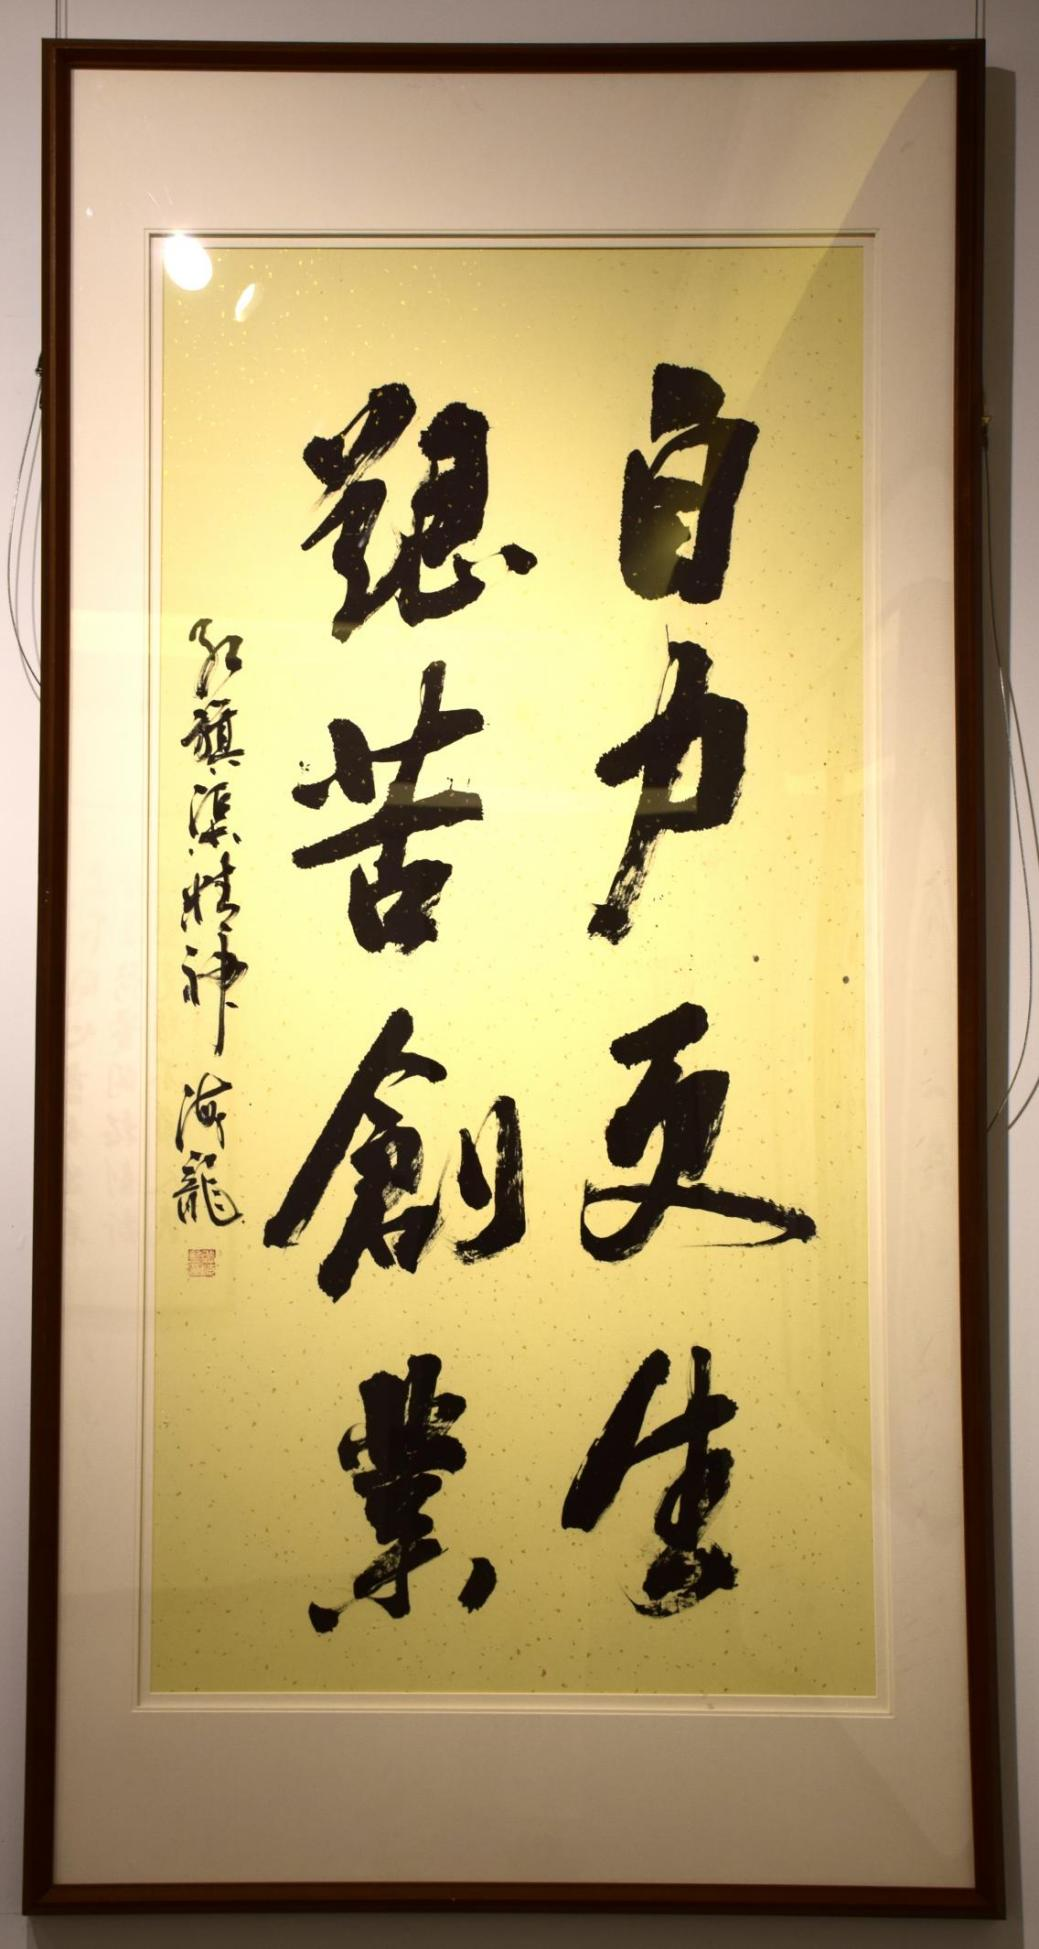 自力更生
艱苦創業
红旗渠精神 海龍